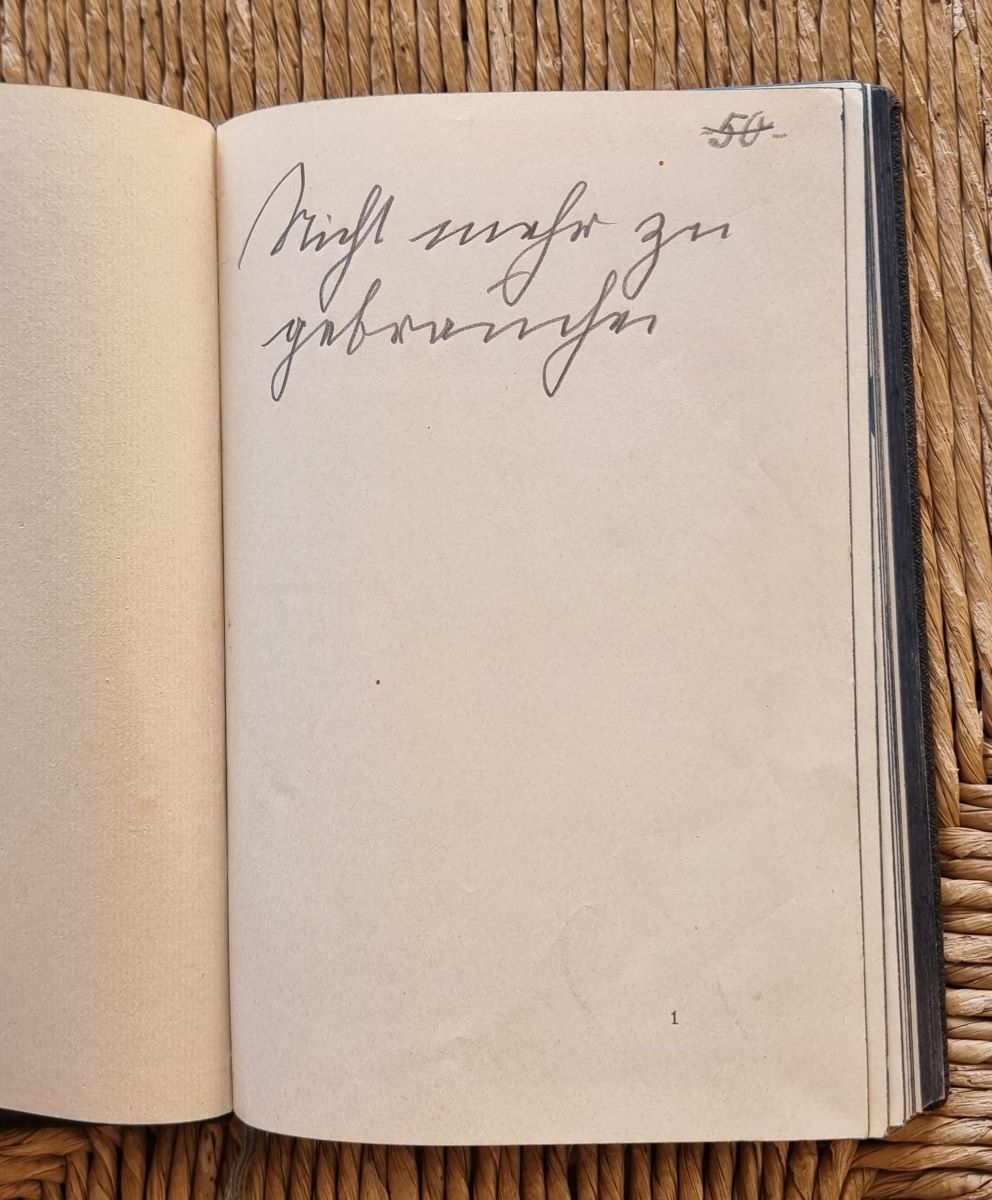 50.-
Nicht mehr zu
gebrauchen
1